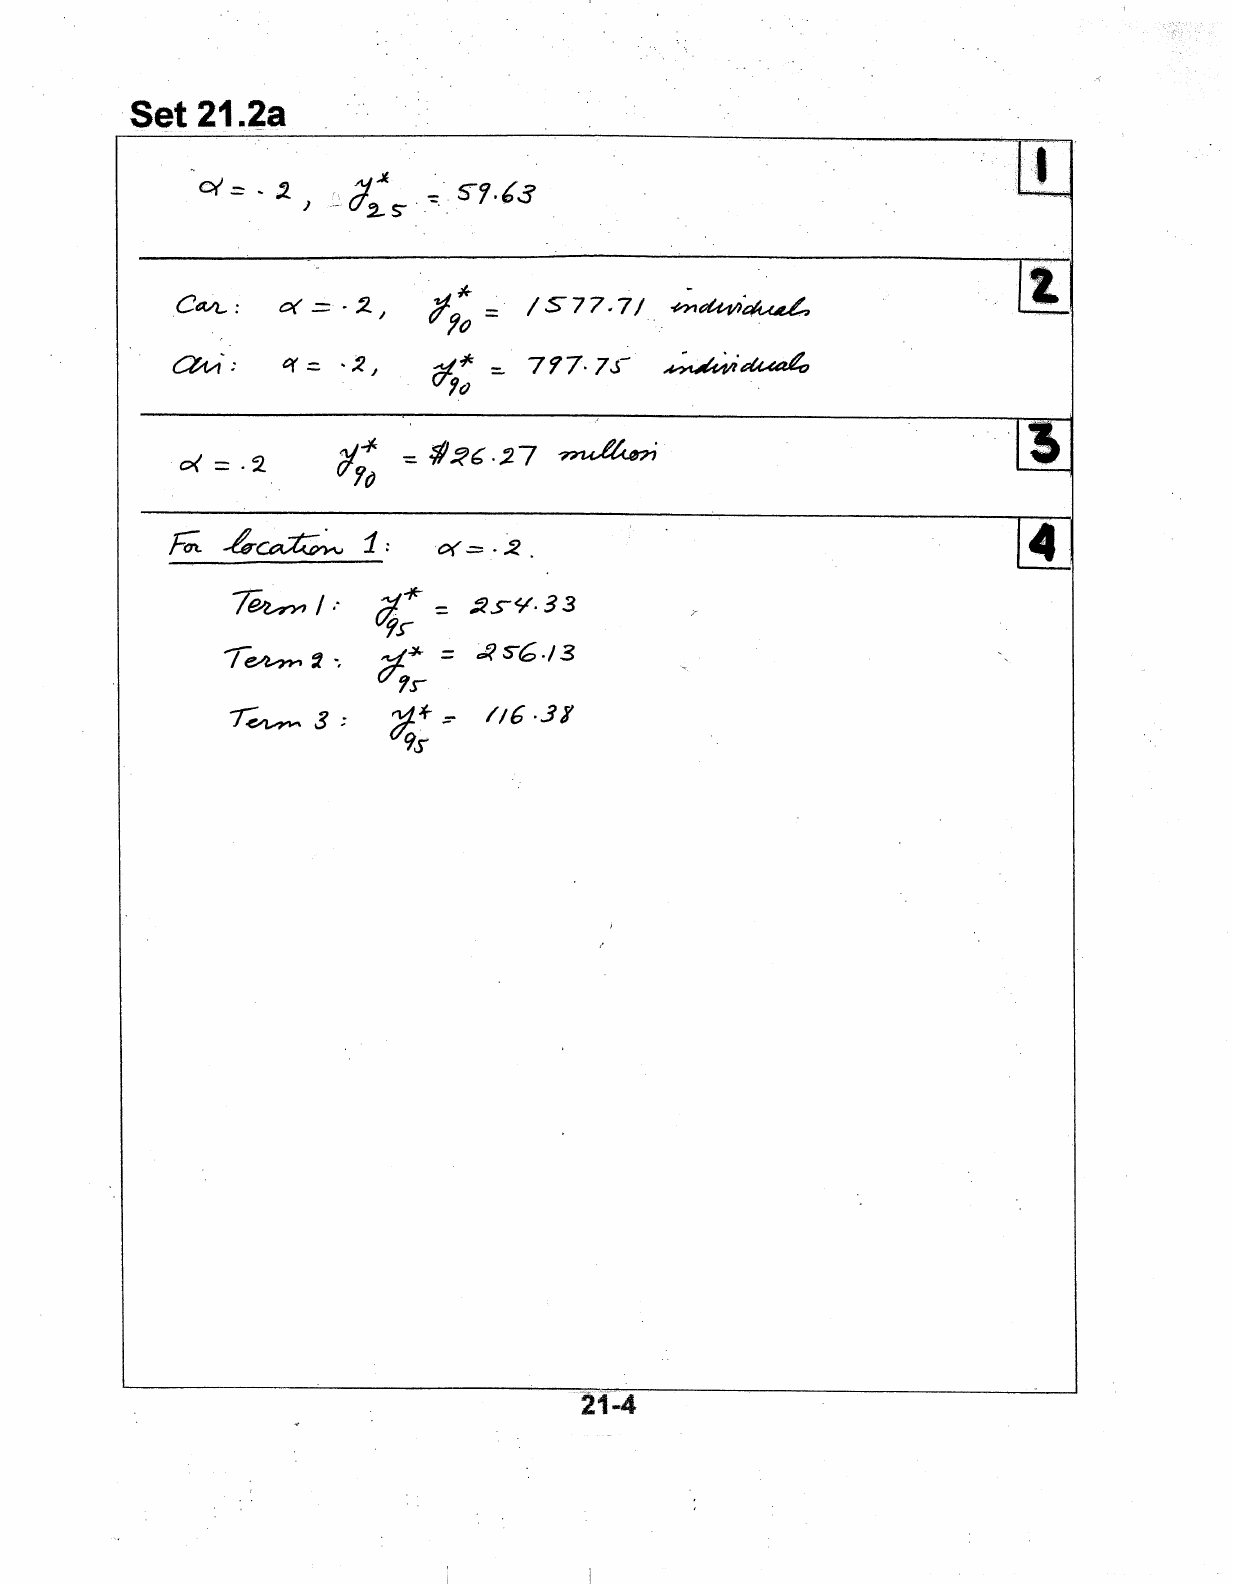 Set 21.2a
1
α = .2, y*₂₅ = 59.63
2
Car: α = .2, y*₉₀ = 1577.71 individuals
Air: α = .2, y*₉₀ = 797.75 individuals
3
α = .2 y*₉₀ = $26.27 million
4
For location 1: α = .2.
Term 1: y*₉₅ = 254.33
Term 2: y*₉₅ = 256.13
Term 3: y*₉₅ = 116.38
21-4